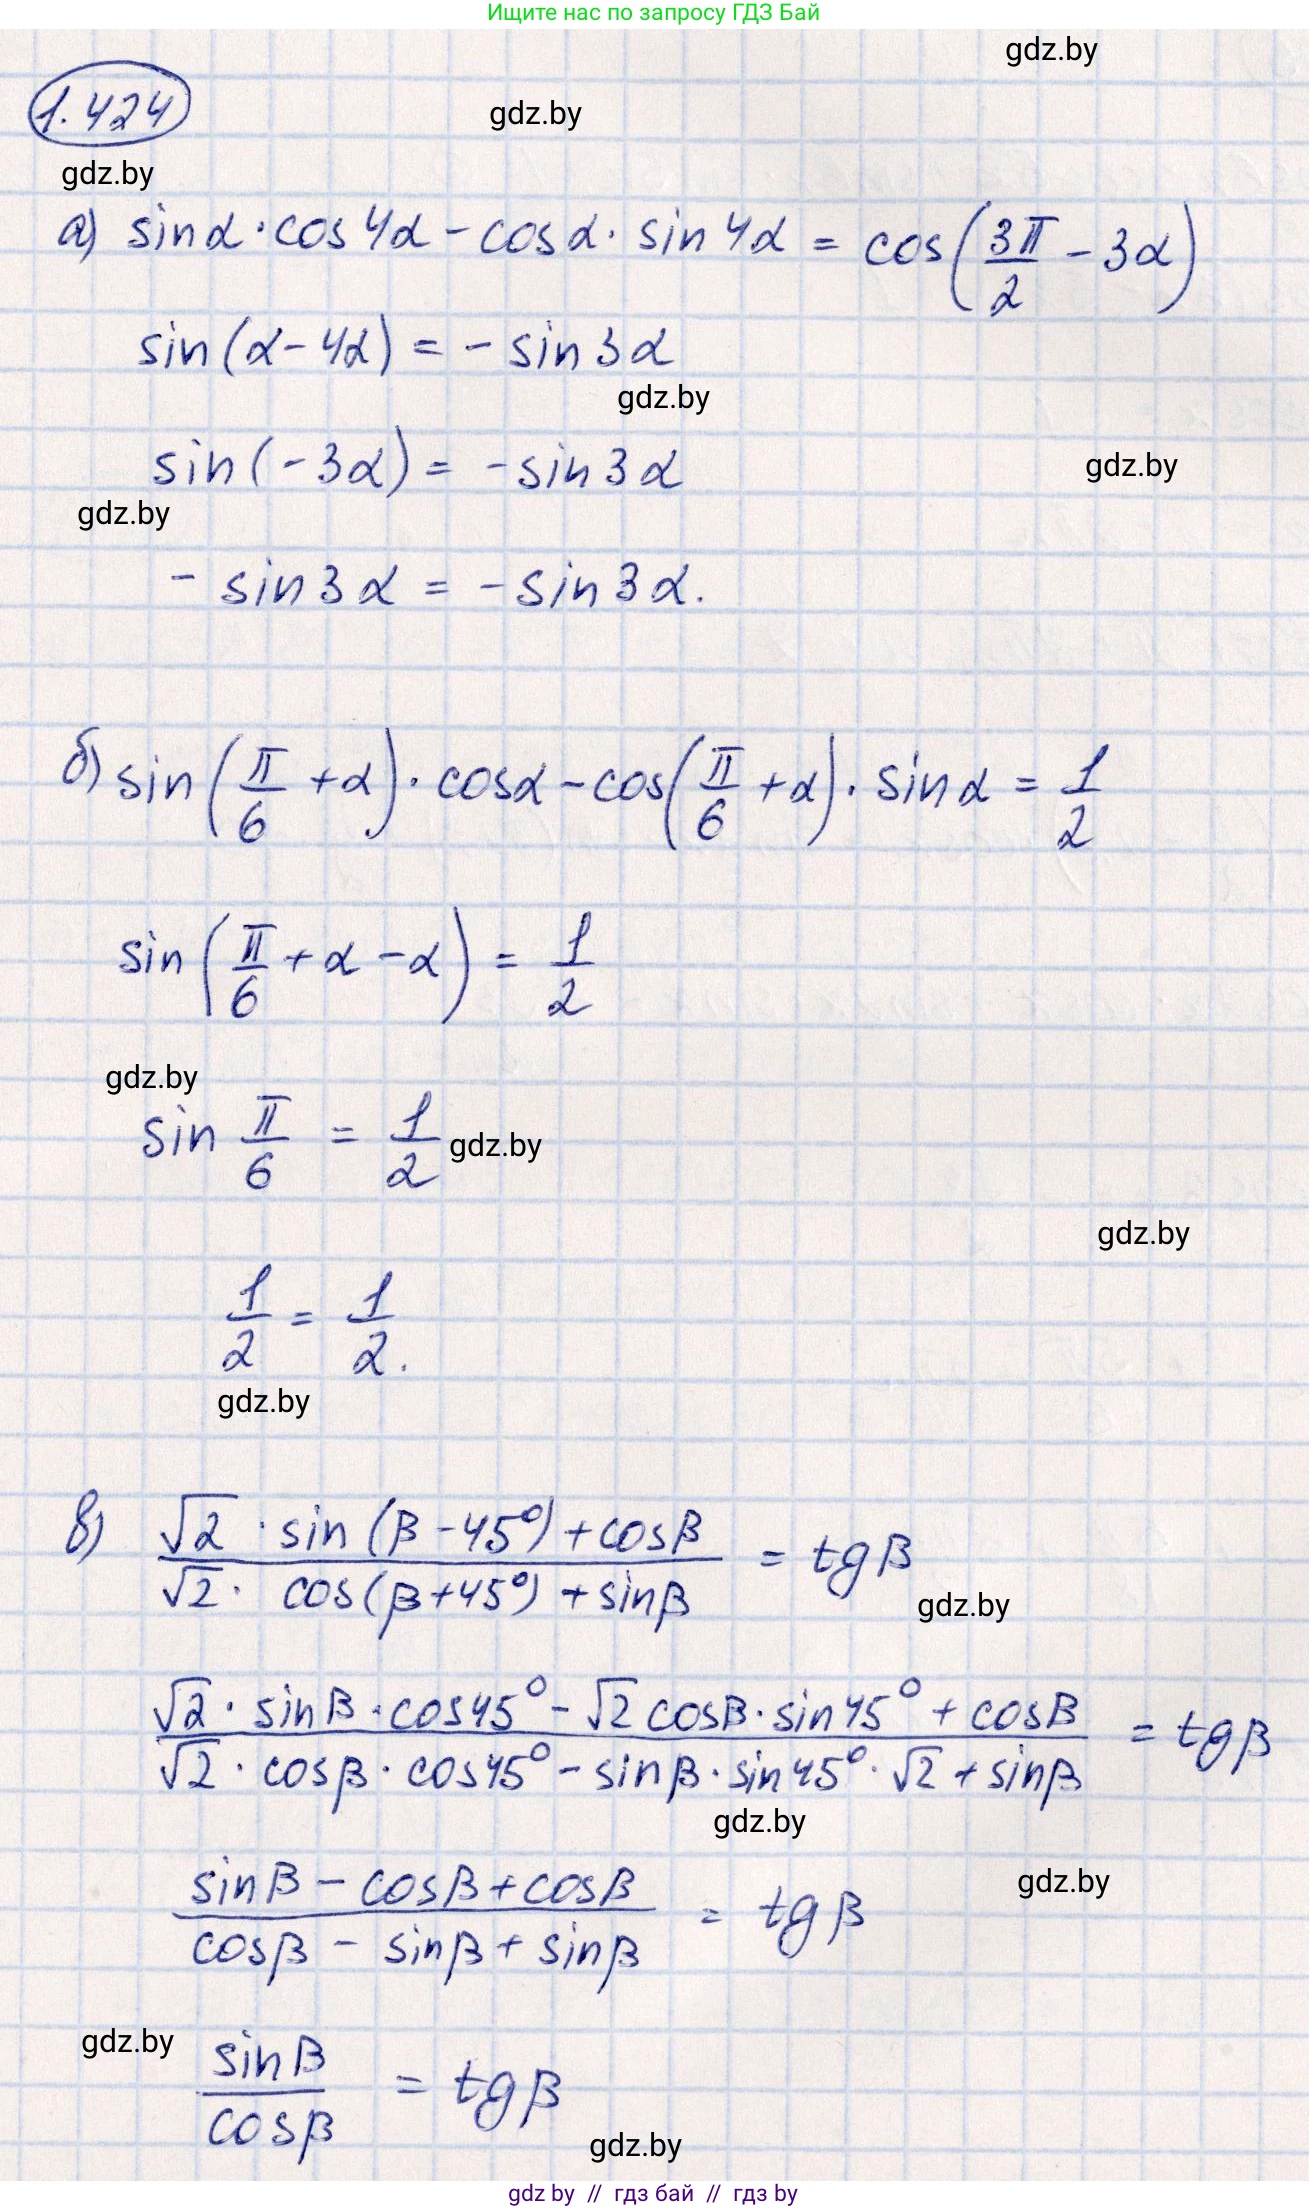 Ищите нас по запросу ГДЗ Бай
gdz.by
1.424
gdz.by
gdz.by
а) sinα·cos4α-cosα·sin4α = cos(3π/2 - 3α)
sin(α-4α) = -sin3α
gdz.by
sin(-3α) = -sin3α
gdz.by
gdz.by
- sin3α = -sin3α.
б) sin(π/6 + α)·cosα-cos(π/6 + α)·sinα = 1/2
sin(π/6 + α - α) = 1/2
gdz.by
sin π/6 = 1/2
gdz.by
gdz.by
1/2 = 1/2.
gdz.by
в) (√2·sin(β-45°)+cosβ)/(√2·cos(β+45°)+sinβ) = tgβ
gdz.by
(√2·sinβ·cos45°-√2cosβ·sin45°+cosβ)/(√2·cosβ·cos45°-sinβ·sin45°·√2+sinβ) = tgβ
gdz.by
(sinβ-cosβ+cosβ)/(cosβ-sinβ+sinβ) = tgβ
gdz.by
gdz.by
sinβ/cosβ = tgβ
gdz.by
gdz by // гдз бай // гдз by